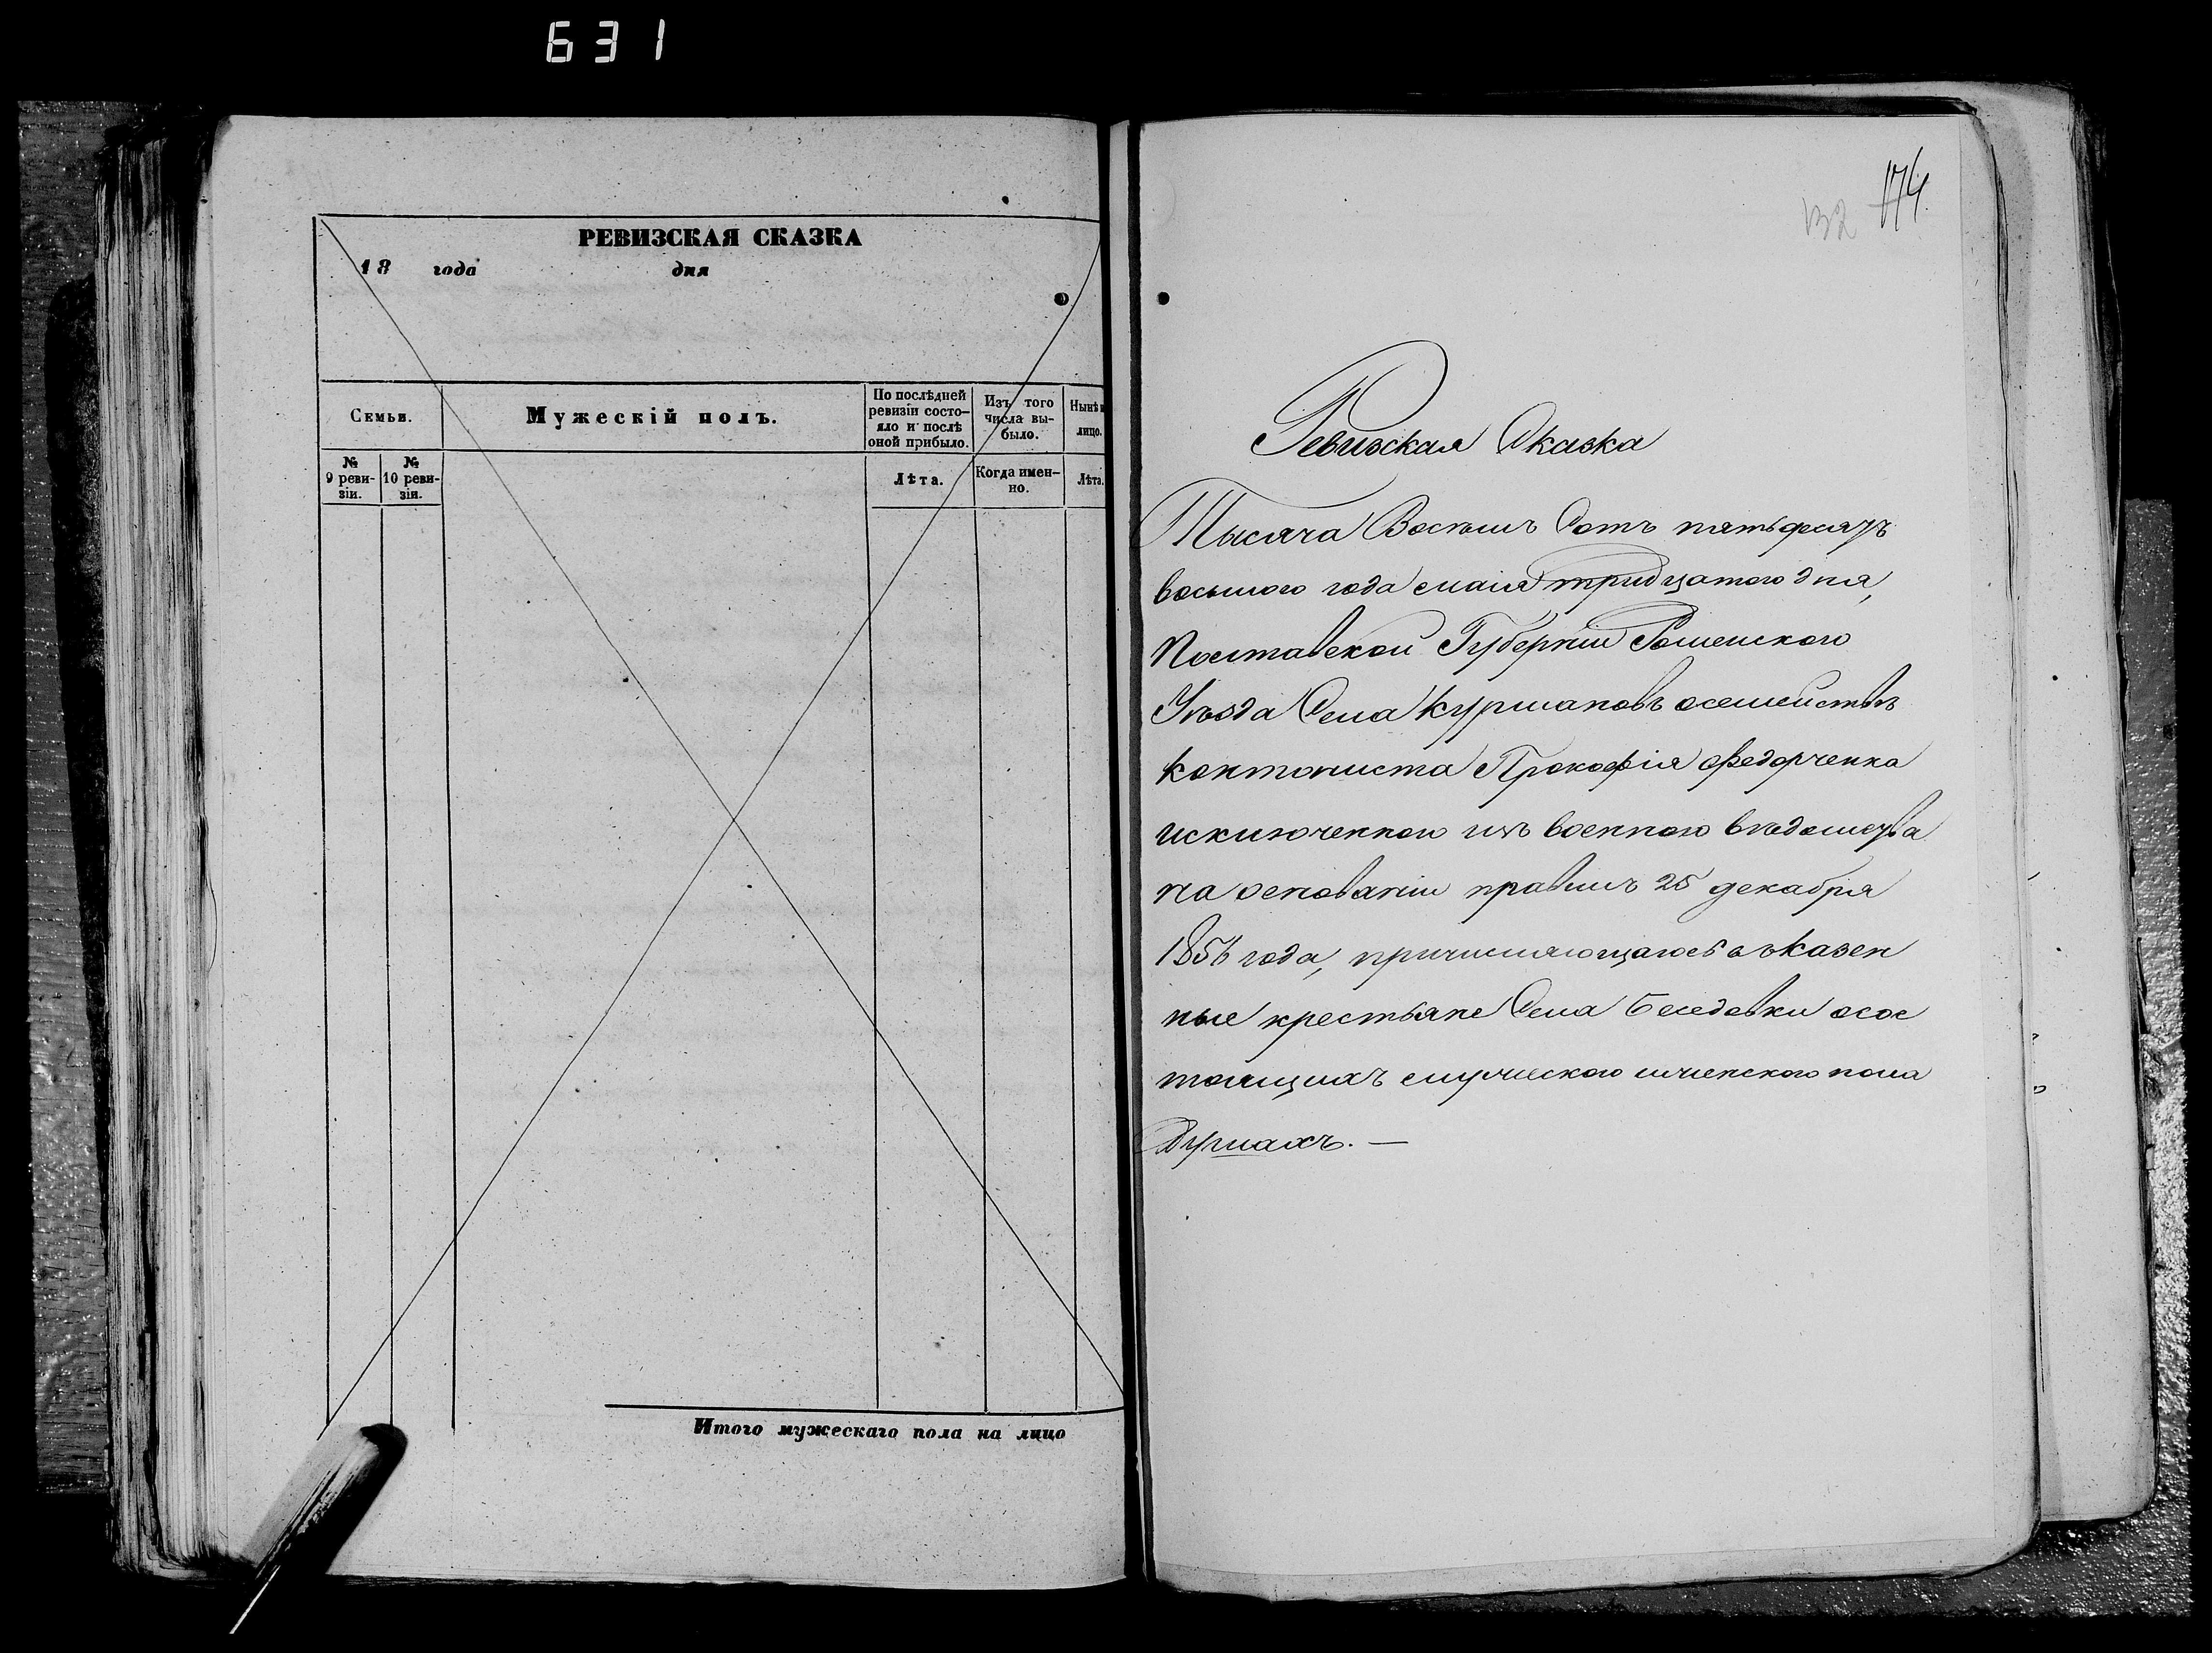 631
РЕВИЗСКАЯ СКАЗКА
18 года дня
Семьи.
Мужескій полъ.
По послѣдней ревизіи состо-
яло и послѣ
оной прибыло.
Изъ того
числа вы-
было.
Нынѣ н
лицо.
№
9 реви-
зіи.
№
10 реви-
зіи.
Лѣта.
Когда имен-
но.
Лѣта.
Итого мужескаго пола на лицо
174
132
Ревизская Сказка
Тысяча Восемь Сотъ пятьдесятъ
восьмого года маія тридцатого дня,
Полтавской Губерніи Роменского
Уѣзда Села Курмановъ осемействѣ
кантониста Прокофія Федорченка
исключенного изъ военного вѣдомства
на основаніи правилъ 25 декабря
1856 года, причисляющагося въ казен
ные крестьяне Села Беседовки осос
тоящихъ мужеского иженского пола
Душахъ. —